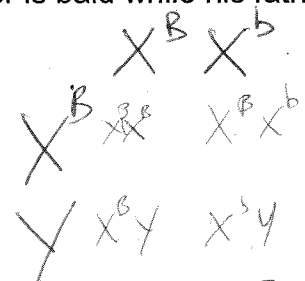 er is bald while his fath
X^B X^b
X^B X^B X^B X^B X^b
Y X^B Y X^b Y